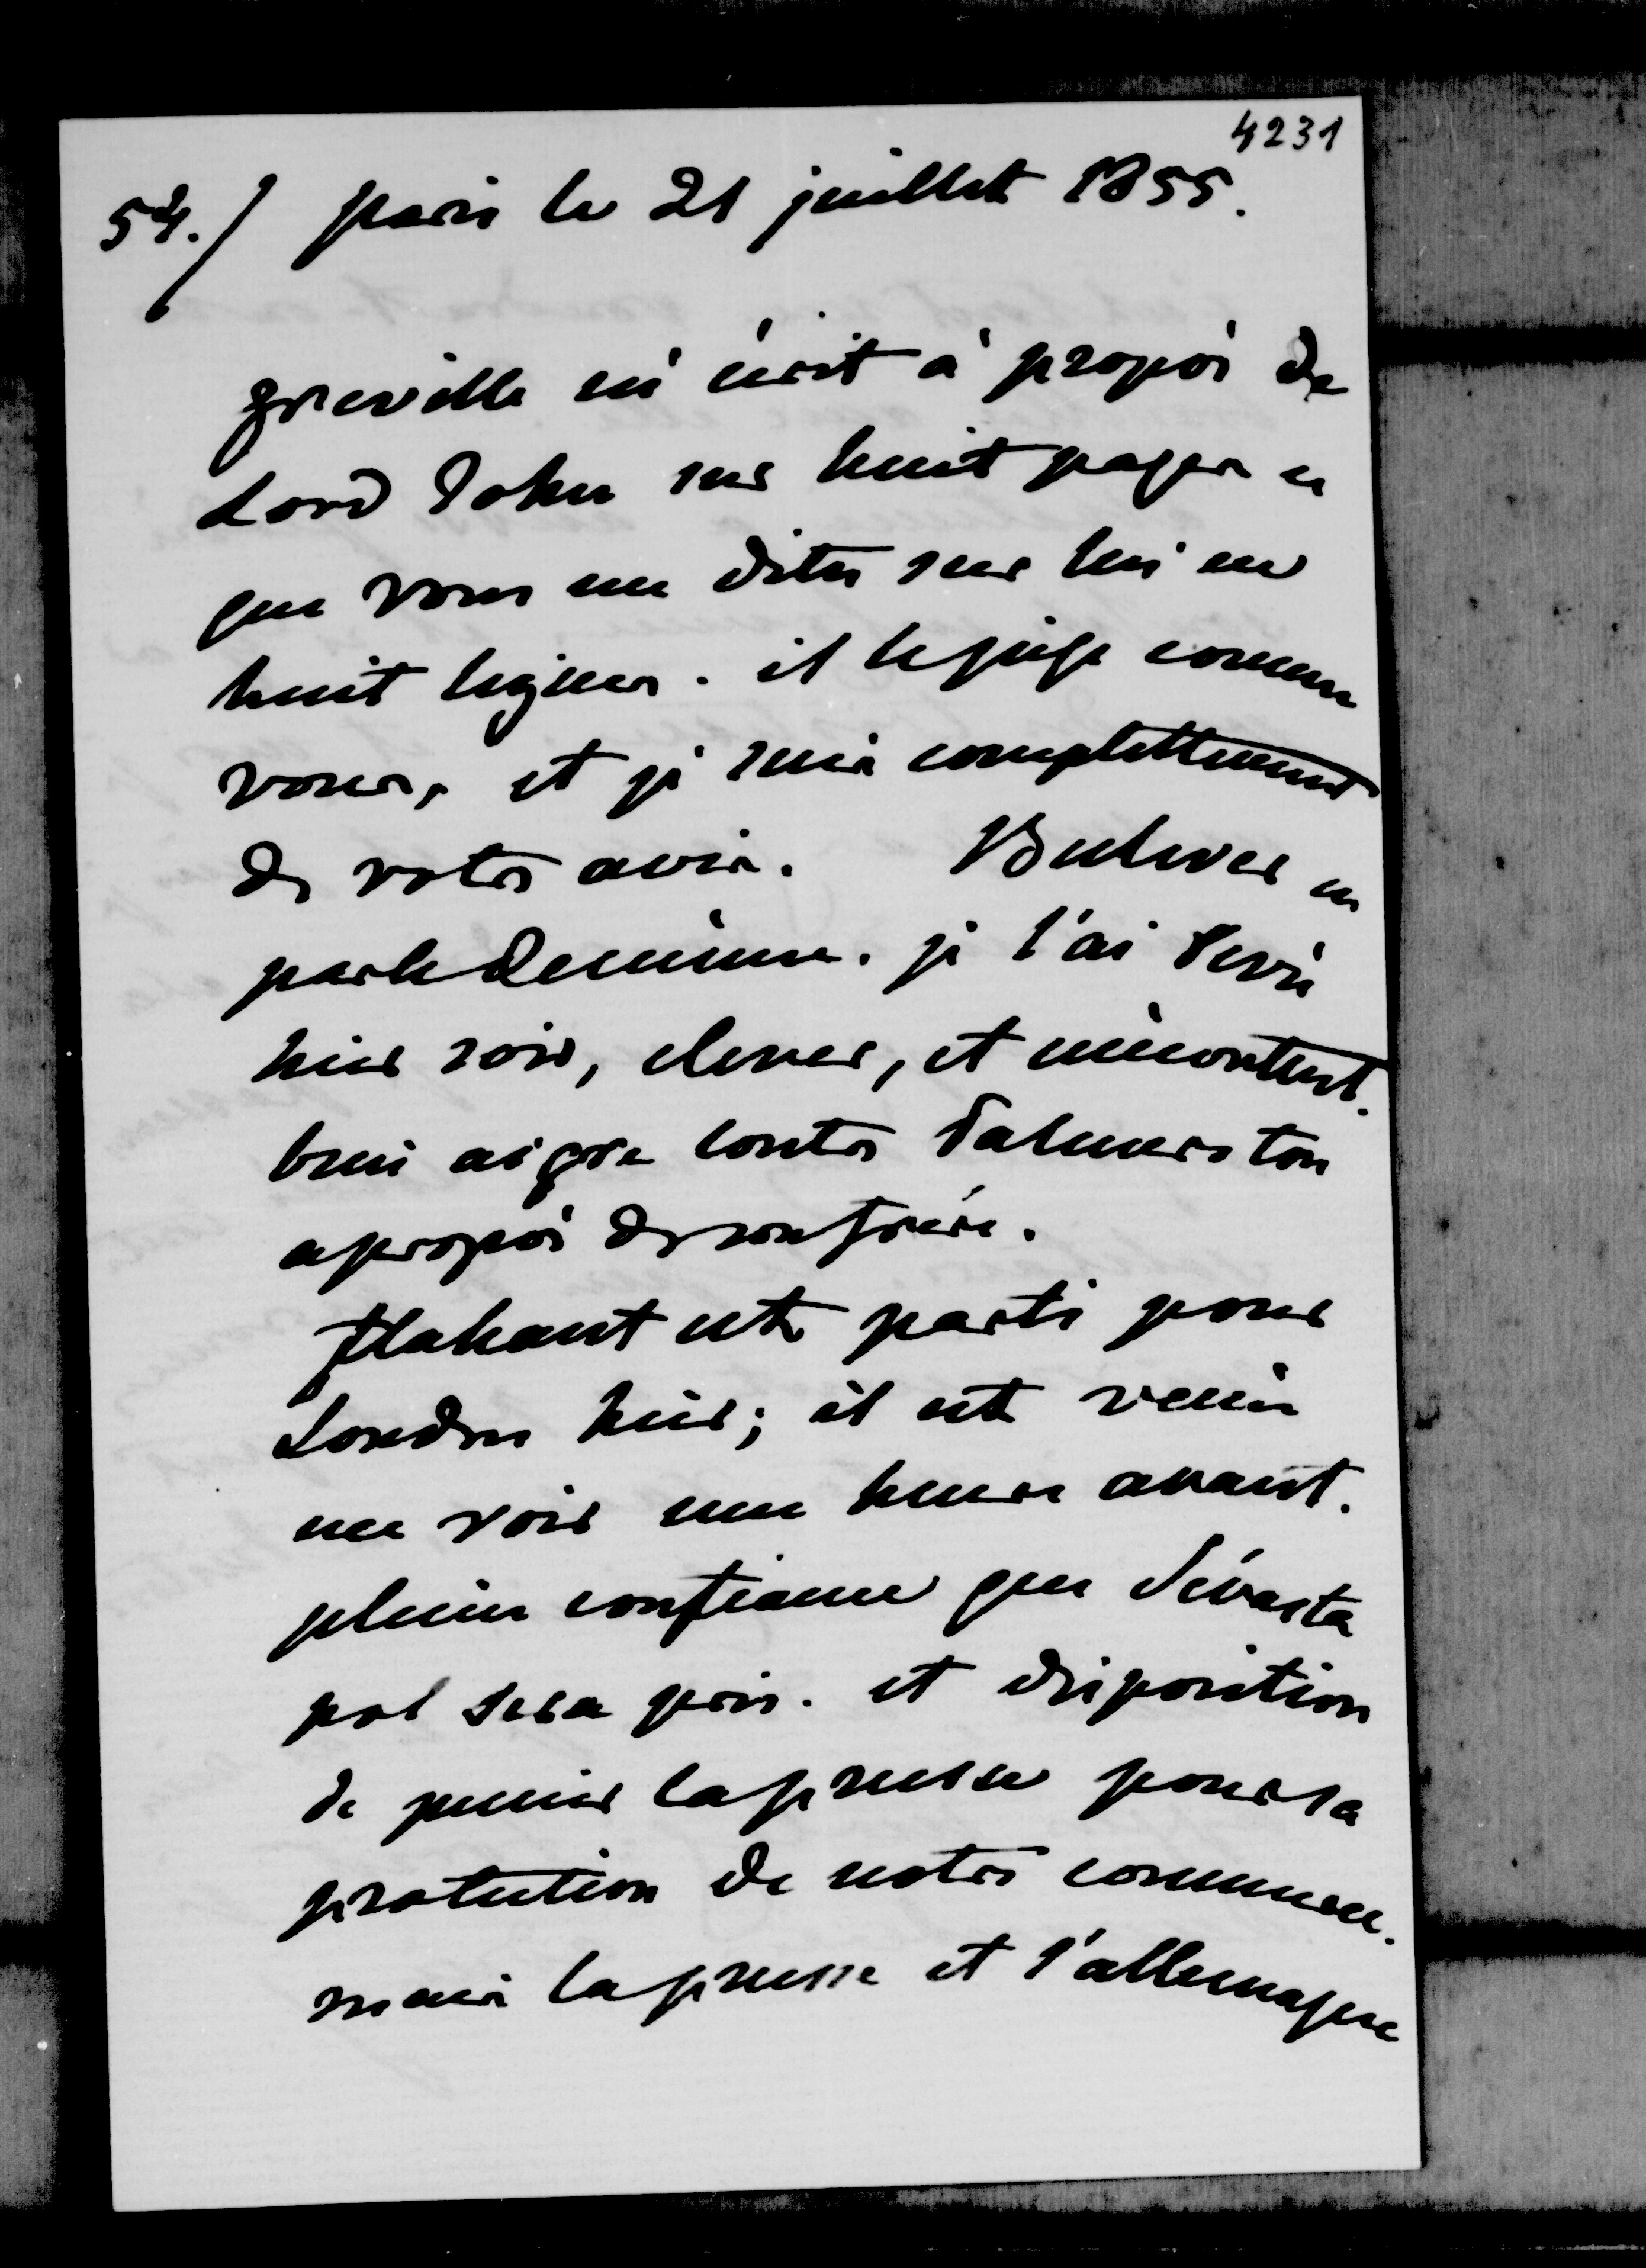 4231
54./ paris le 21 juillet 1855.
greville m'écrit à propos de
Lord John sur huit pages ce
que vous me dites sur lui en
huit lignes. il le juge comme
vous, et je suis complettement
de votre avis. Bulwer en
parle de même. je l'ai revu
hier soir, clever, et mécontent.
bien aigre contre Palmerston
apropos de son frère.
flahaut est parti pour
Londres hier; il est venu
me voir une heure avant.
pleine confiance que Sévasta
pol sera pris. et disposition
de punir la prusse pour sa
protection de notre commerce.
mais la prusse et l'allemagne